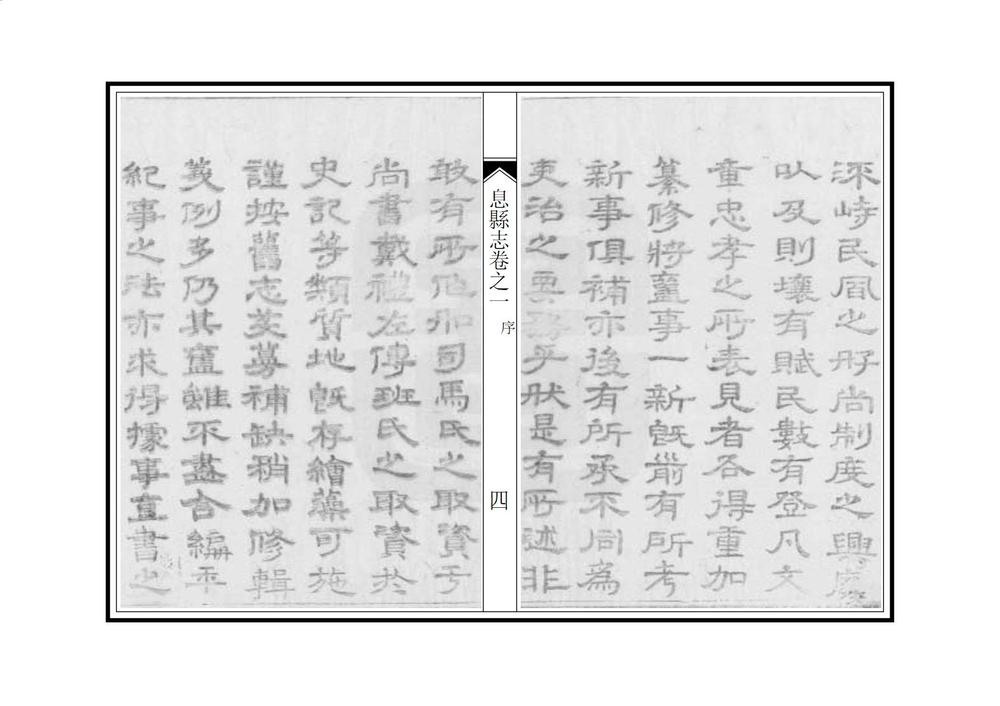 深峙民風之所尚制度之興廢
以及則壤有賦民數有登凡文
章忠孝之所表見者各得重加
纂修將蓋事一新旣前有所考
新事俱補亦後有所承不同爲
吏治之要務乎狀是有所述非
息縣志卷之一 序 四
敢有所他如司馬氏之取資于
尚書戴禮左傳班氏之取資於
史記等類質地旣存繪藻可施
謹按舊志芟蕪補缺稍加修輯
義例多仍其舊雖不盡合編年
紀事之法亦求得據事直書之